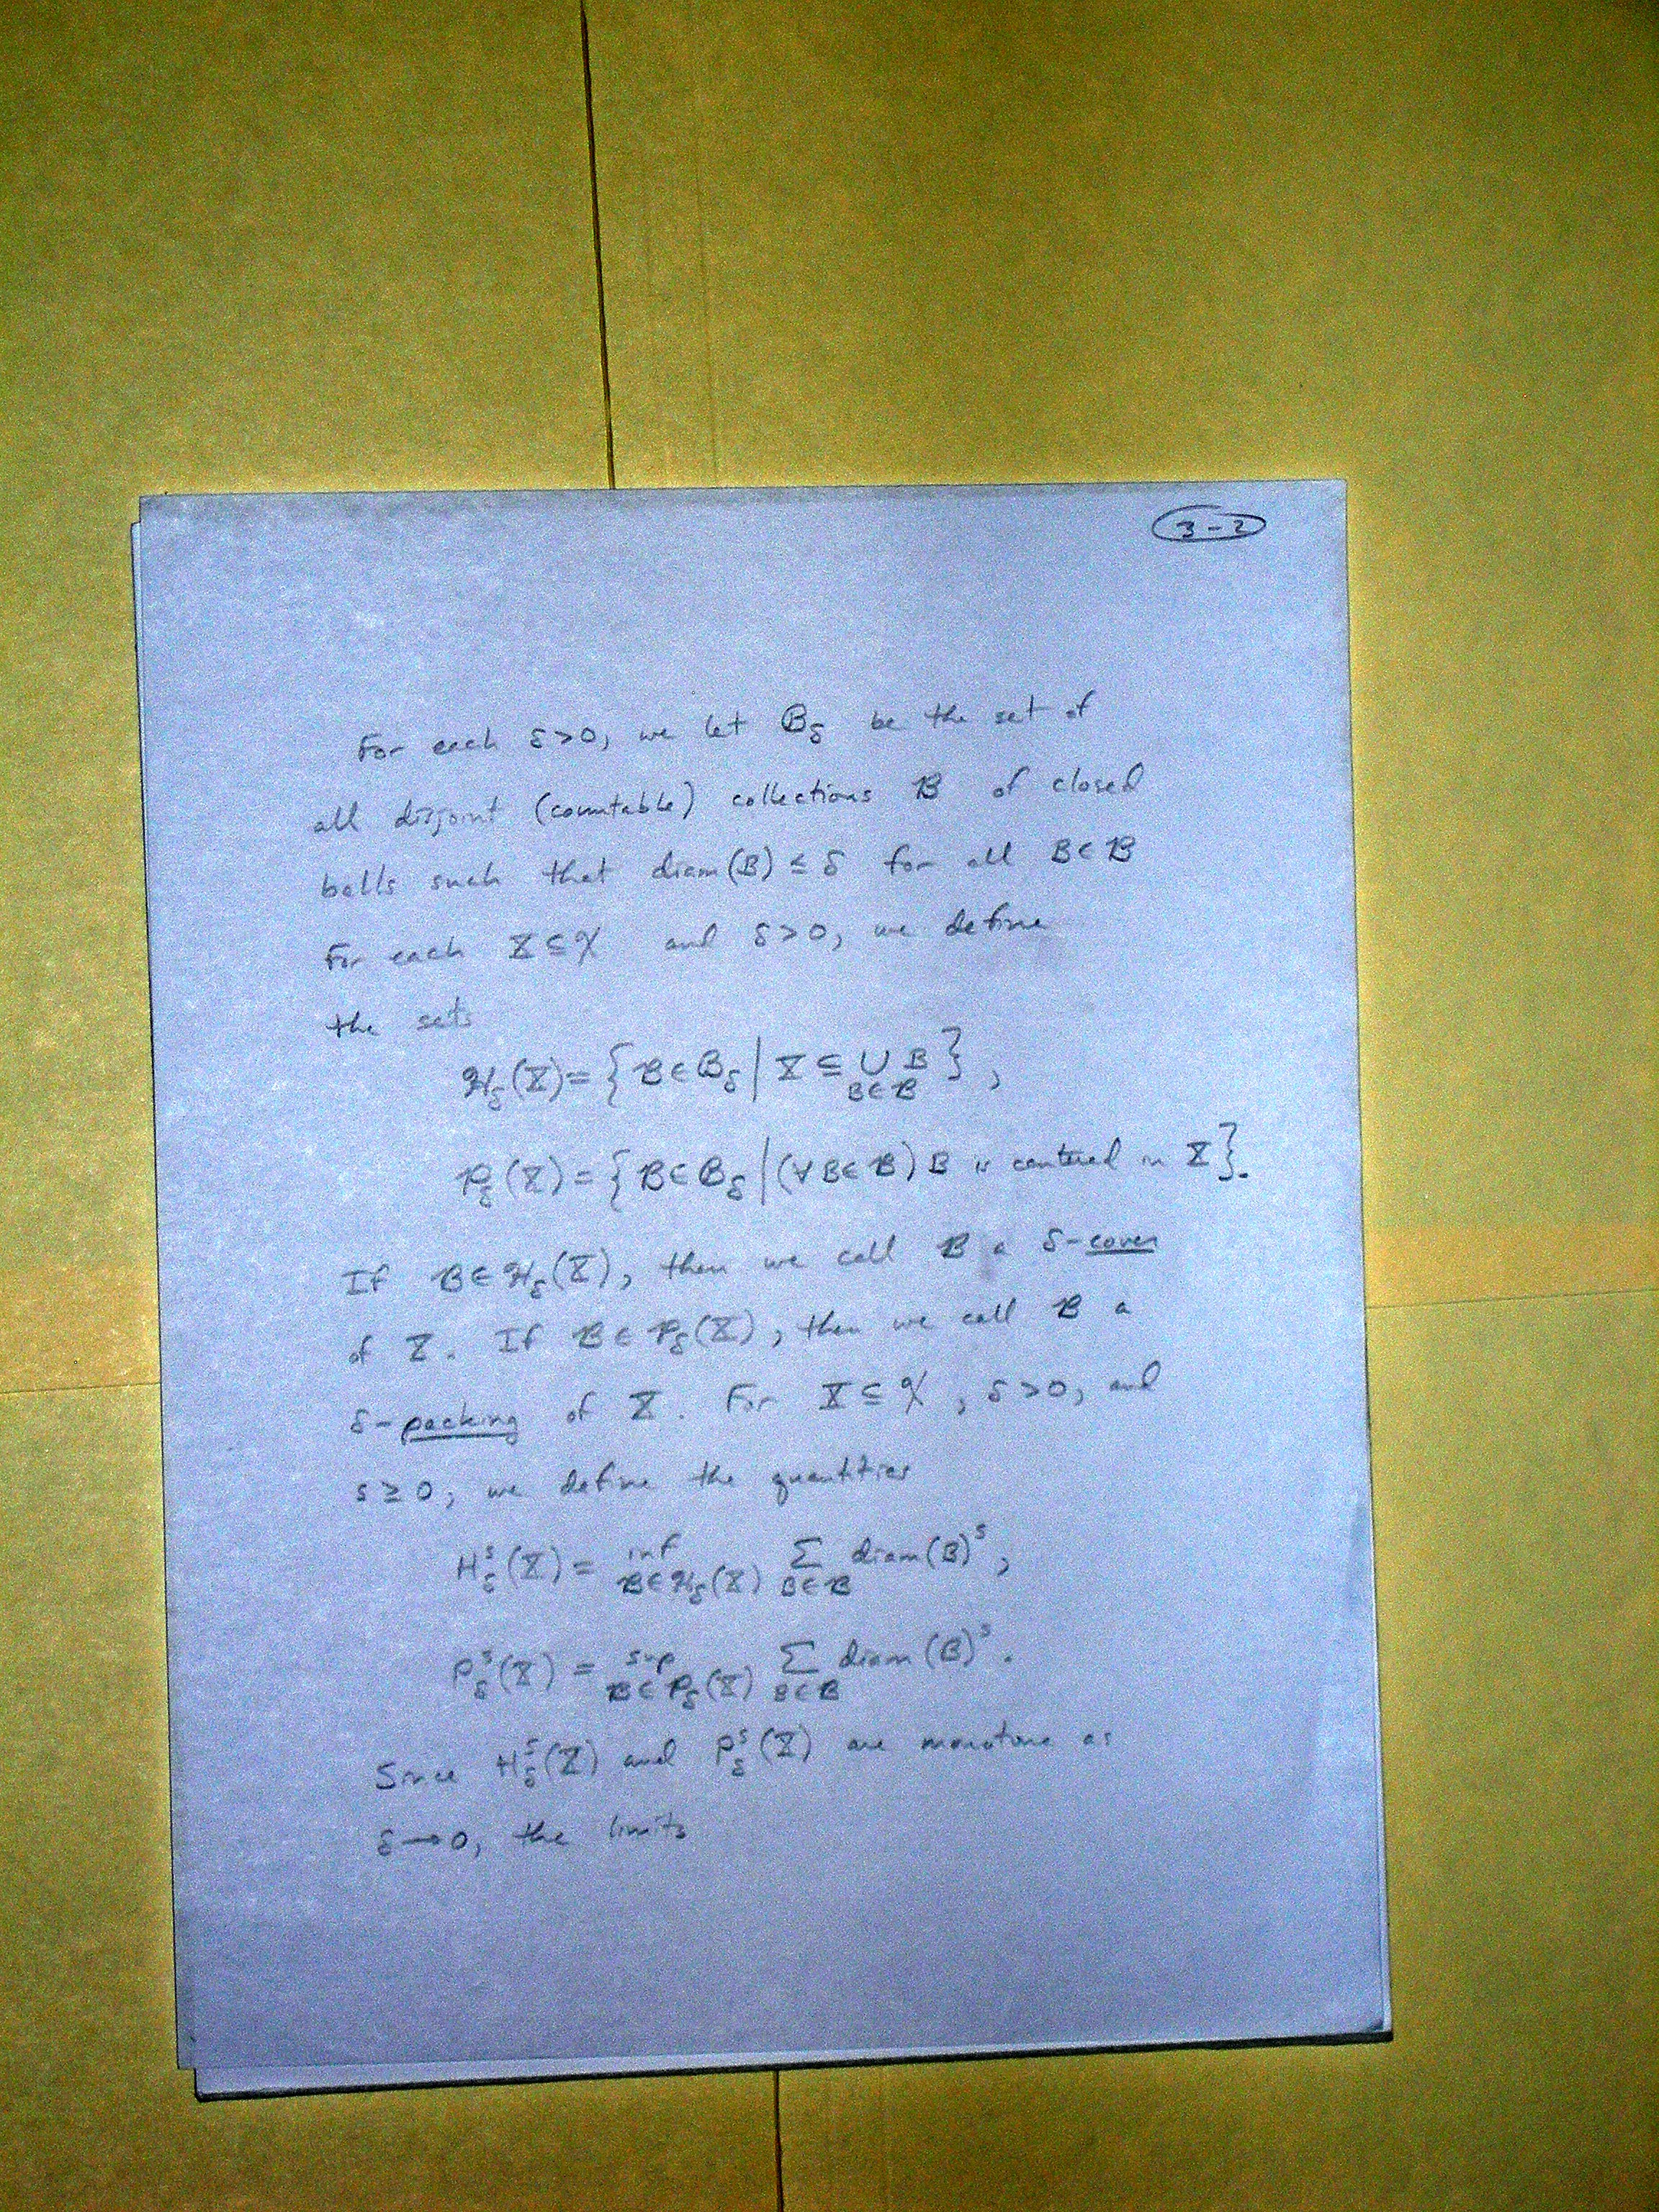 3-2
For each δ>0, we let ℬ_δ be the set of
all disjoint (countable) collections ℬ of closed
balls such that diam(B) ≤ δ for all B∈ℬ
For each X⊆𝒳 and δ>0, we define
the sets
ℋ_δ(X) = {ℬ∈ℬ_δ | X ⊆ ⋃_{B∈ℬ} B},
𝒫_δ(X) = {ℬ∈ℬ_δ | (∀B∈ℬ) B is centered in X}.
If ℬ∈ℋ_δ(X), then we call ℬ a δ-cover
of X. If ℬ∈𝒫_δ(X), then we call ℬ a
δ-packing of X. For X⊆𝒳, δ>0, and
s≥0, we define the quantities
H^s_δ(X) = inf_{ℬ∈ℋ_δ(X)} Σ_{B∈ℬ} diam(B)^s,
P^s_δ(X) = sup_{ℬ∈𝒫_δ(X)} Σ_{B∈ℬ} diam(B)^s.
Since H^s_δ(X) and P^s_δ(X) are monotone as
δ→0, the limits